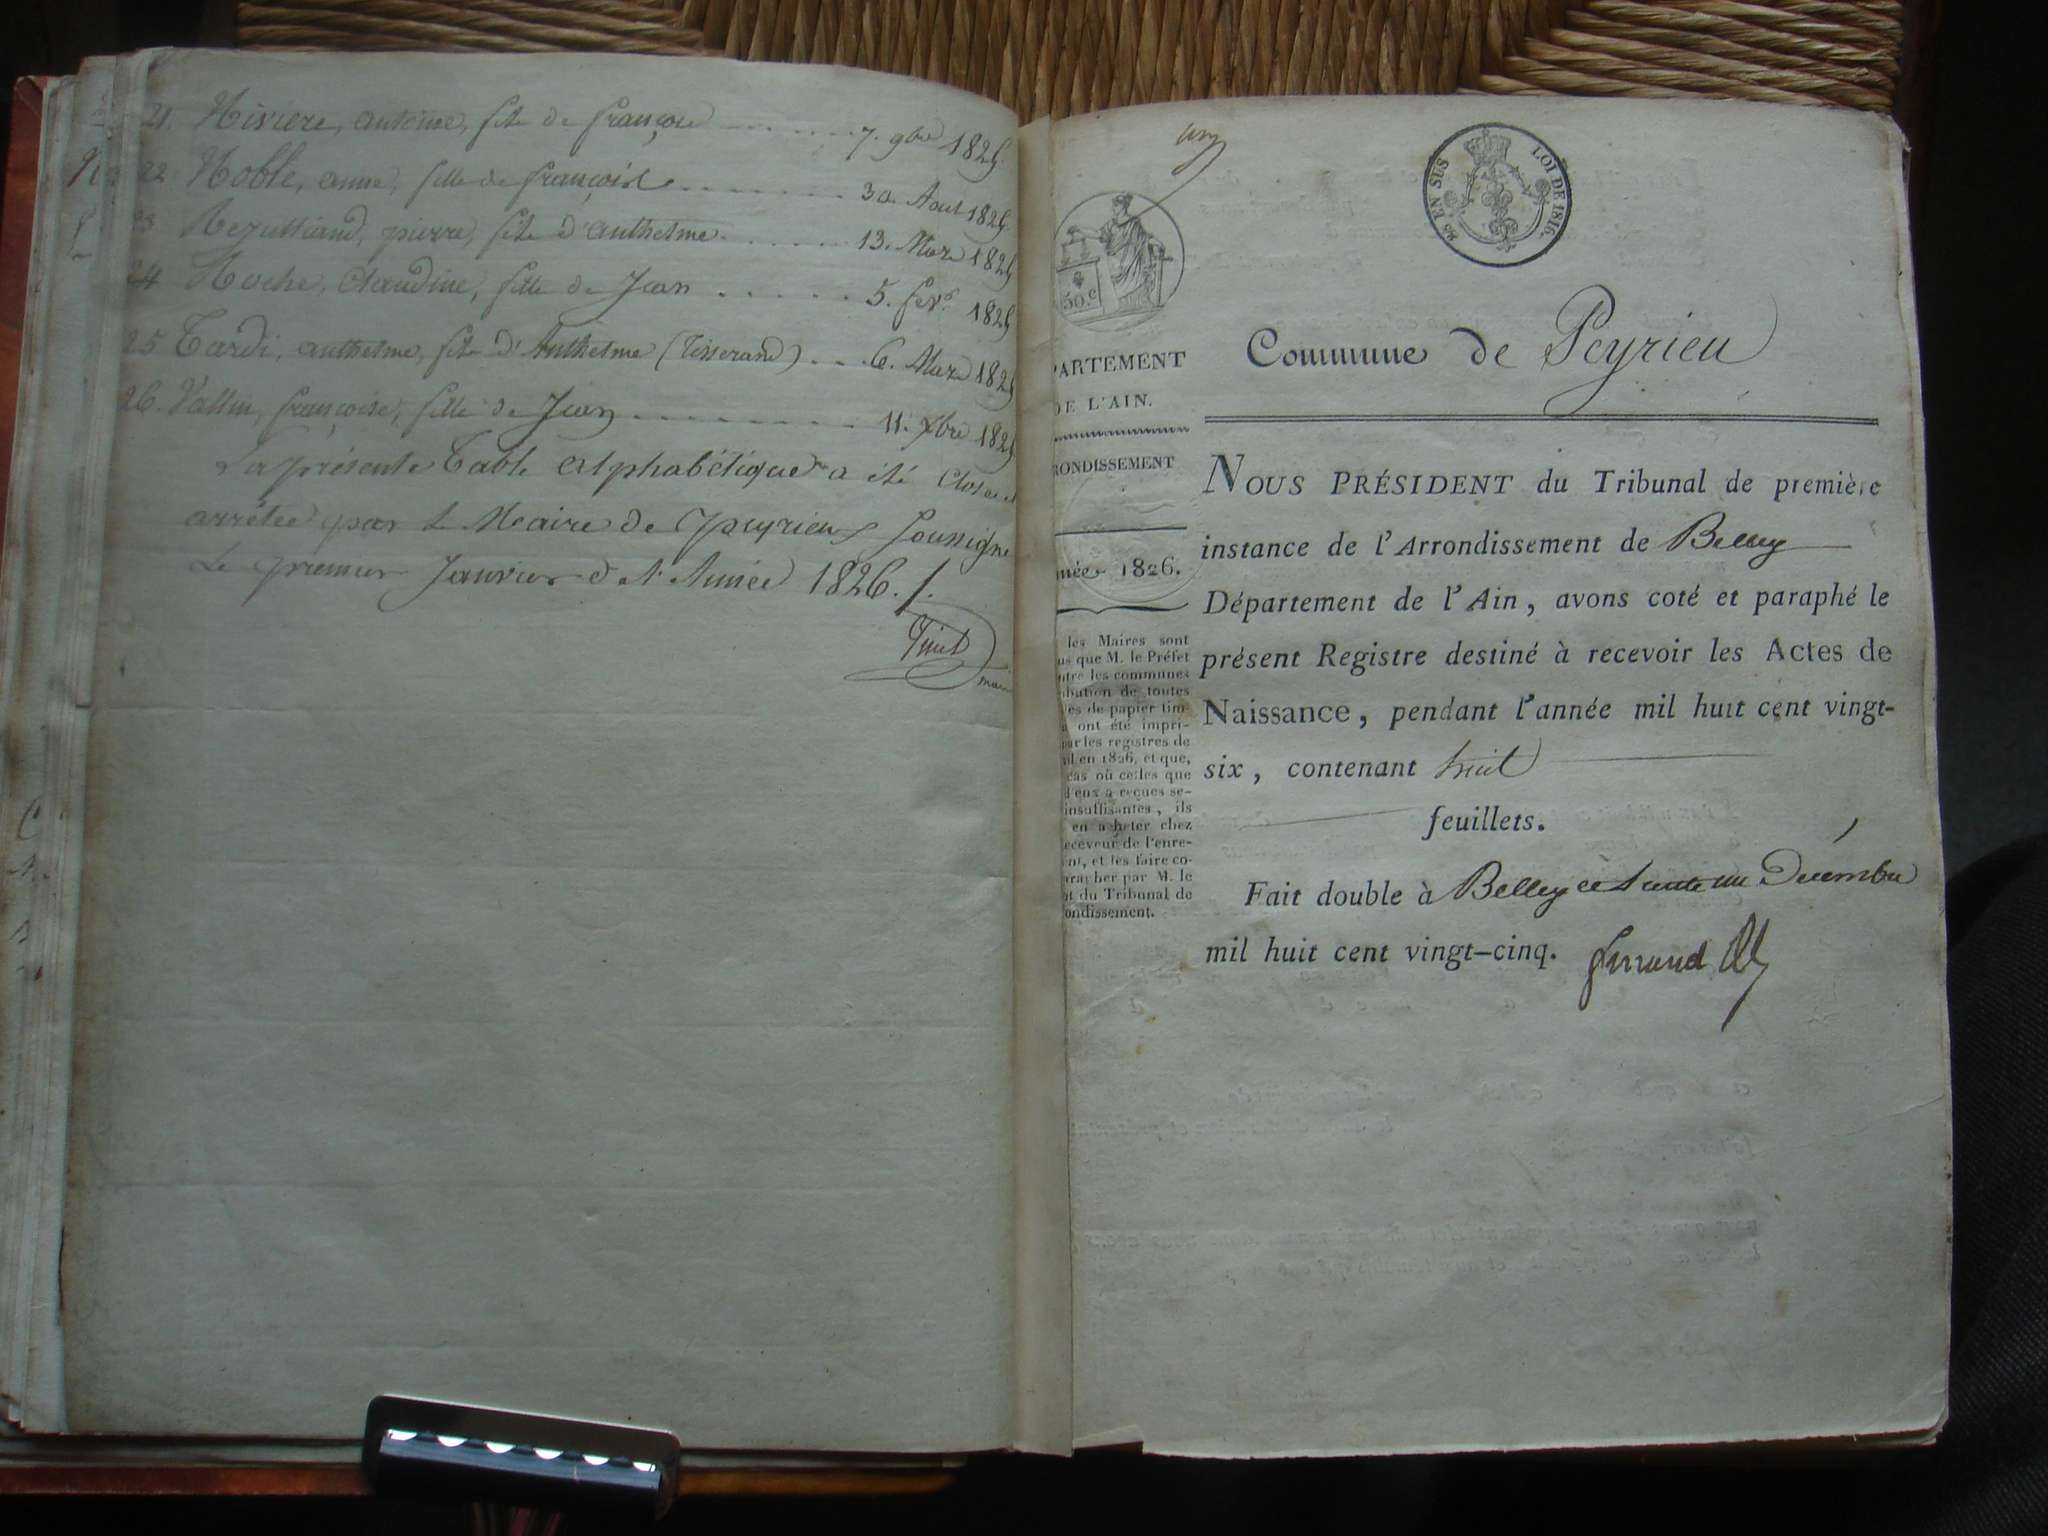 21. Riviere, antoine, fils de françois 7. 9bre 1825
22 Noble, anne, fille de françois 30. Aout 1825
23 pierre, fils d'anthelme 13. Mars 1825
24 Roche, Claudine, fille de Jean 5. fevr. 1825
25 Tardi, anthelme, fils d'Anthelme (Tisserand) 6. Mars 1825
26. Vallin, françoise, fille de Jean 11. Xbre 1825
La présente Table Alphabétique a été Close et
arrêtée par le Maire de Peyrieu Soussigné
Le premier Janvier de l'Année 1826.
maire
EN SUS LOI DE 1816.
50.c
Commune de Peyrieu
PARTEMENT
DE L'AIN.
RONDISSEMENT
née 1826.
les Maires sont
us que M. le Préfet
ntre les communes
ibution de toutes
es de papier tim-
ont été impri-
par les registres de
il en 1826, et que,
cas où celles que
d'eux a reçues se-
insuffisantes, ils
en acheter chez
eceveur de l'enre-
nt, et les faire co-
arapher par M. le
nt du Tribunal de
ondissement.
NOUS PRÉSIDENT du Tribunal de première
instance de l'Arrondissement de Belley
Département de l'Ain, avons coté et paraphé le
présent Registre destiné à recevoir les Actes de
Naissance, pendant l'année mil huit cent vingt-
six, contenant huit
feuillets.
Fait double à Belley ce trente un Décembre
mil huit cent vingt-cinq.